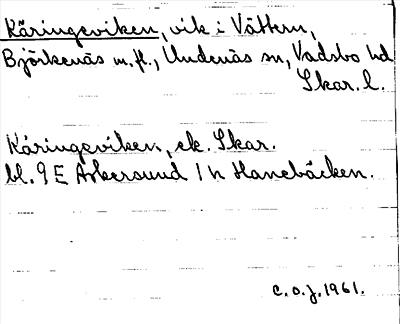 Käringeviken, vik i Vättern,
Björkenäs m.fl., Undenäs sn, Vadsbo hd
Skar. l.
Käringeviken, ek. Skar.
bl. 9 E Askersund 1 h Hanebäcken.
C.O.J. 1961.